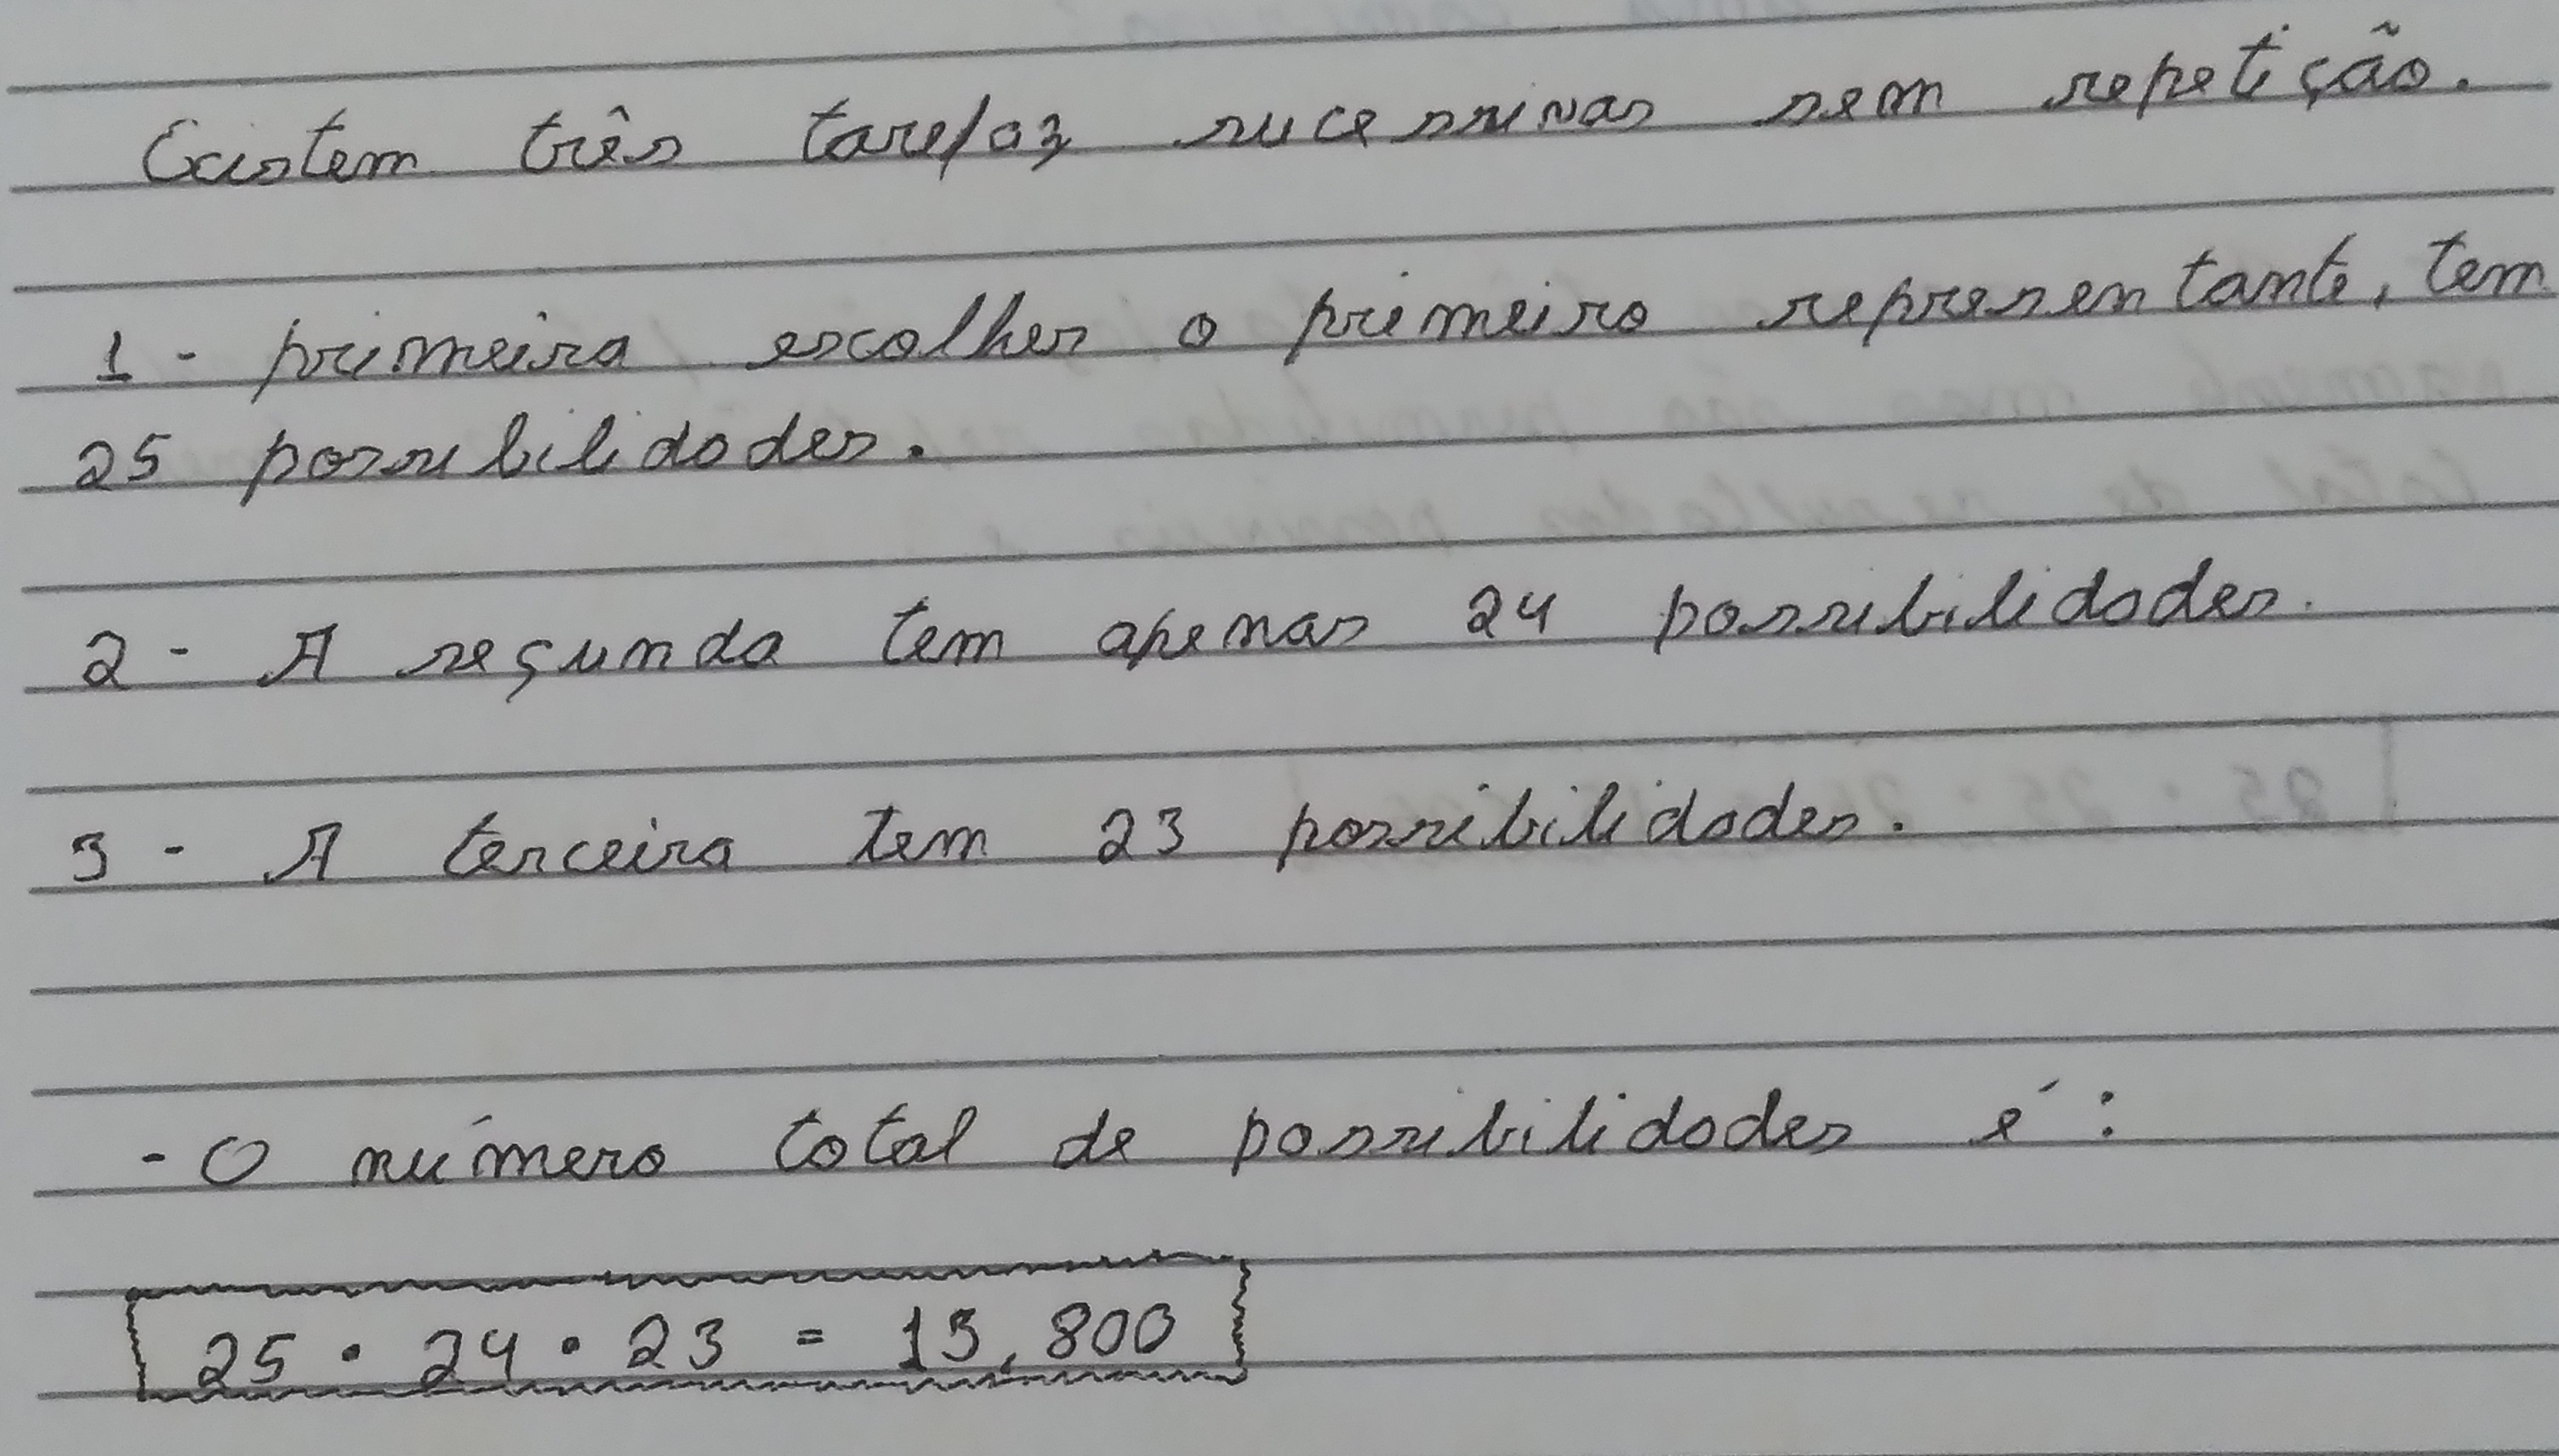 Existem três tarefas sucessivas sem repetição.
1 - primeira escolher o primeiro representante, tem
25 possibilidades.
2 - A segunda tem apenas 24 possibilidades.
3 - A terceira tem 23 possibilidades.
- O número total de possibilidades é :
25 • 24 • 23 = 13,800